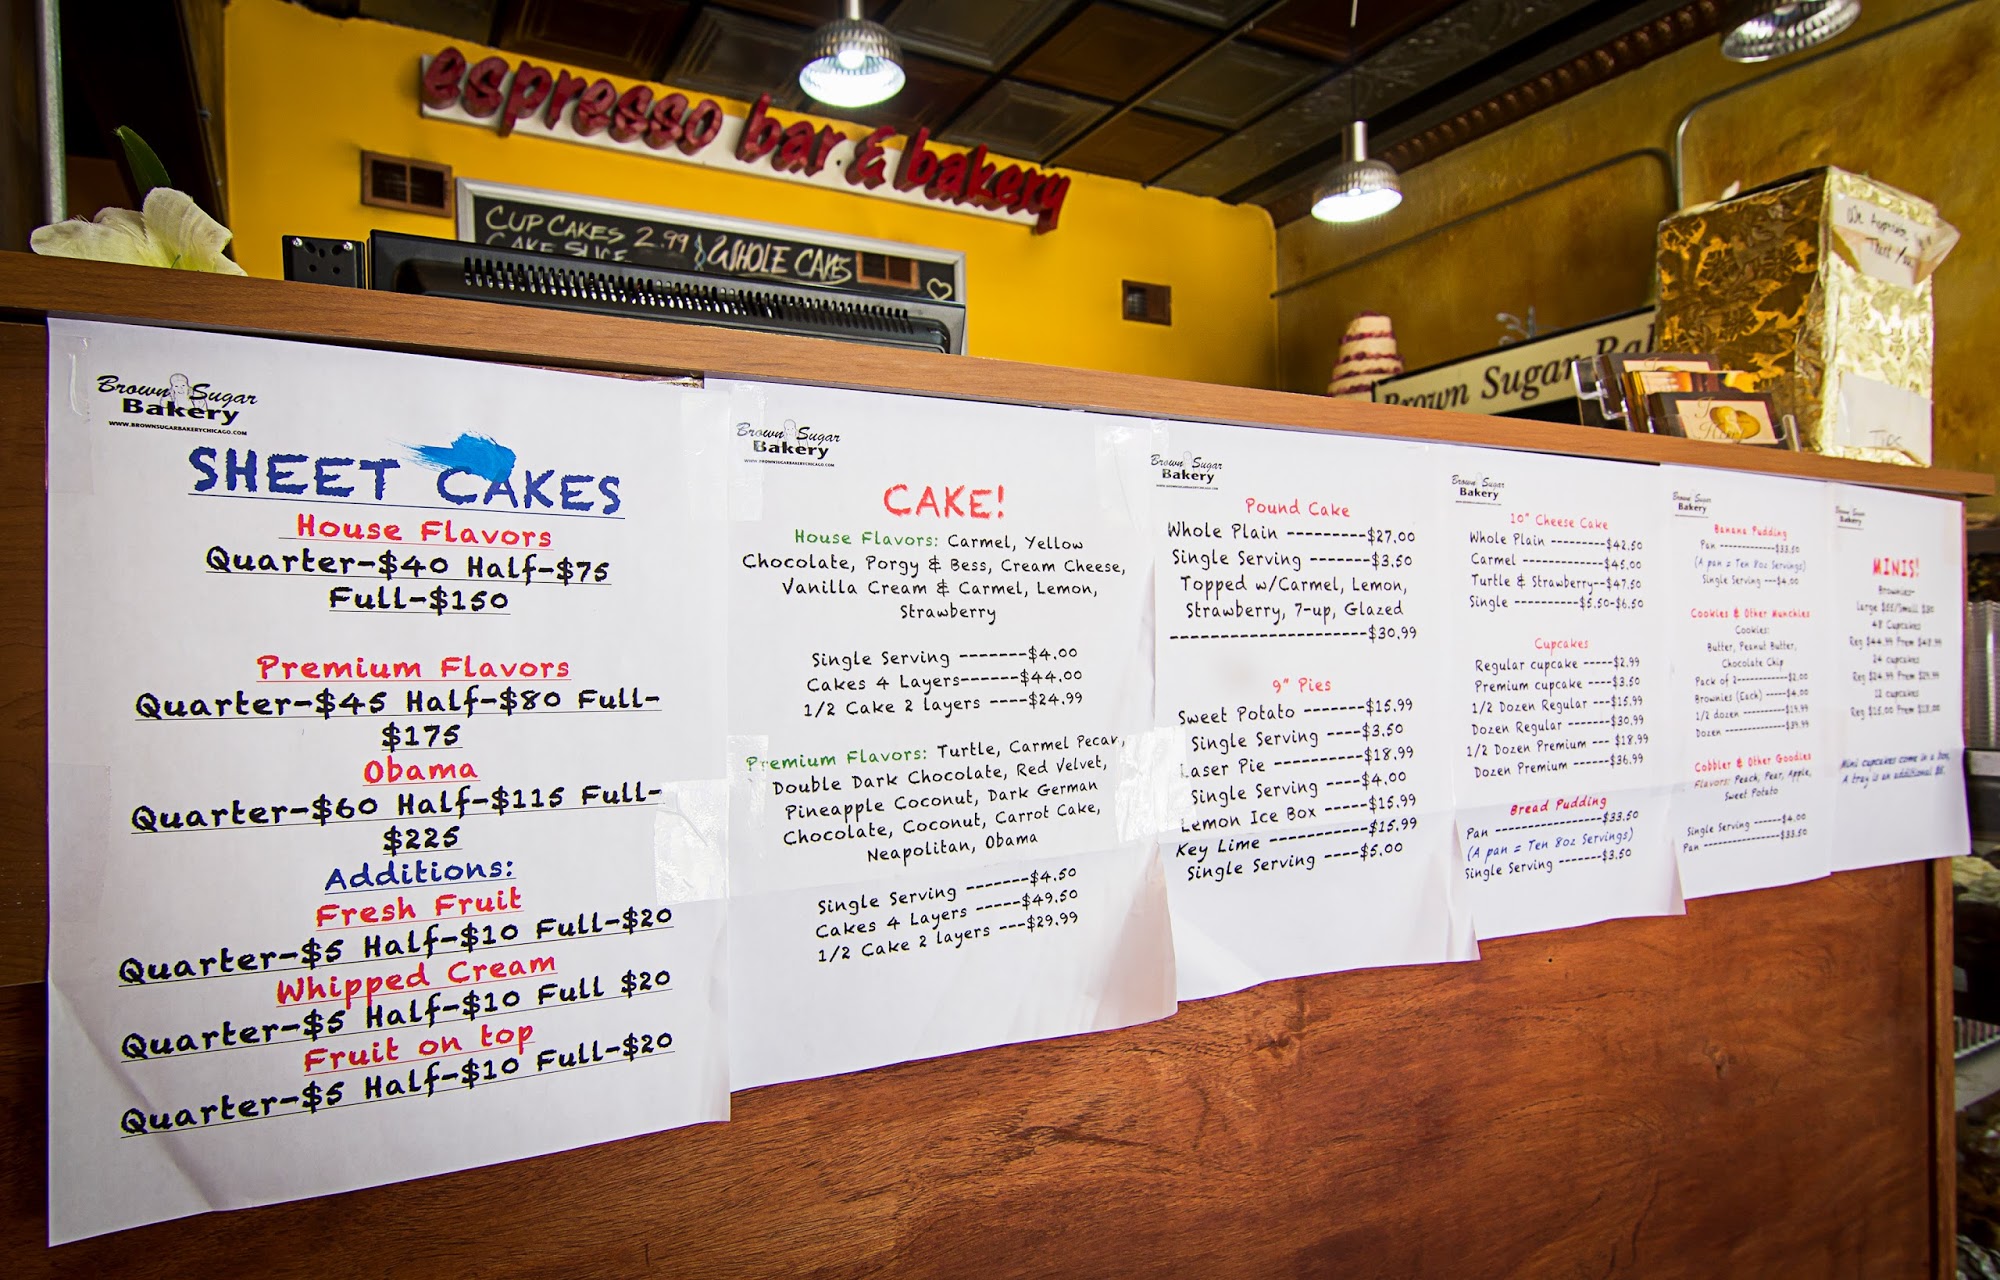 espresso bar & bakery
CUP CAKES 2.99
CAKE SLICE
WHOLE CAKES
Brown Sugar
We
Tips
Brown Sugar
Bakery
WWW.BROWNSUGARBAKERYCHICAGO.COM
SHEET CAKES
House Flavors
Quarter-$40 Half-$75
Full-$150
Premium Flavors
Quarter-$45 Half-$80 Full-
$175
Obama
Quarter-$60 Half-$115 Full-
$225
Additions:
Fresh Fruit
Quarter-$5 Half-$10 Full-$20
Whipped Cream
Quarter-$5 Half-$10 Full $20
Fruit on top
Quarter-$5 Half-$10 Full-$20
Brown Sugar
Bakery
WWW.BROWNSUGARBAKERYCHICAGO.COM
CAKE!
House Flavors: Carmel, Yellow
Chocolate, Porgy & Bess, Cream Cheese,
Vanilla Cream & Carmel, Lemon,
Strawberry
Single Serving -------$4.00
Cakes 4 Layers------$44.00
1/2 Cake 2 layers ----$24.99
Premium Flavors: Turtle, Carmel Pecan,
Double Dark Chocolate, Red Velvet,
Pineapple Coconut, Dark German
Chocolate, Coconut, Carrot Cake,
Neapolitan, Obama
Single Serving -------$4.50
Cakes 4 Layers -----$49.50
1/2 Cake 2 layers ---$29.99
Brown Sugar
Bakery
Pound Cake
Whole Plain ---------$27.00
Single Serving -------$3.50
Topped w/Carmel, Lemon,
Strawberry, 7-up, Glazed
----------------------$30.99
9" Pies
Sweet Potato -------$15.99
Single Serving ----$3.50
Laser Pie ----------$18.99
Single Serving ----$4.00
Lemon Ice Box -----$15.99
Key Lime ----------$15.99
Single Serving ----$5.00
Brown Sugar
Bakery
10" Cheese Cake
Whole Plain --------$42.50
Carmel ------------$45.00
Turtle & Strawberry--$47.50
Single ----------$5.50-$6.50
Cupcakes
Regular cupcake -----$2.99
Premium cupcake ----$3.50
1/2 Dozen Regular ---$15.99
Dozen Regular ------$30.99
1/2 Dozen Premium --- $18.99
Dozen Premium -----$36.99
Bread Pudding
Pan ----------------$33.50
(A pan = Ten 8oz Servings)
Single Serving -------$3.50
Brown Sugar
Bakery
Banana Pudding
Pan ------------$33.50
(A pan = Ten 8oz Servings)
Single Serving ---$4.00
Cookies & Other Munchies
Cookies:
Butter, Peanut Butter,
Chocolate Chip
Pack of 2-----------$2.00
Brownies (Each) -----$4.00
1/2 dozen ---------$19.99
Dozen ------------$39.99
Cobbler & Other Goodies
Flavors: Peach, Pear, Apple,
Sweet Potato
Single Serving -----$4.00
Pan ---------------$33.50
Brown Sugar
Bakery
MINIS!
Brownies-
Large $55/Small $30
48 Cupcakes
Reg $44.99 Prem $48.99
24 cupcakes
Reg $24.99 Prem $29.99
12 cupcakes
Reg $15.00 Prem $18.00
Mini cupcakes come in a box,
A tray is an additional $5.